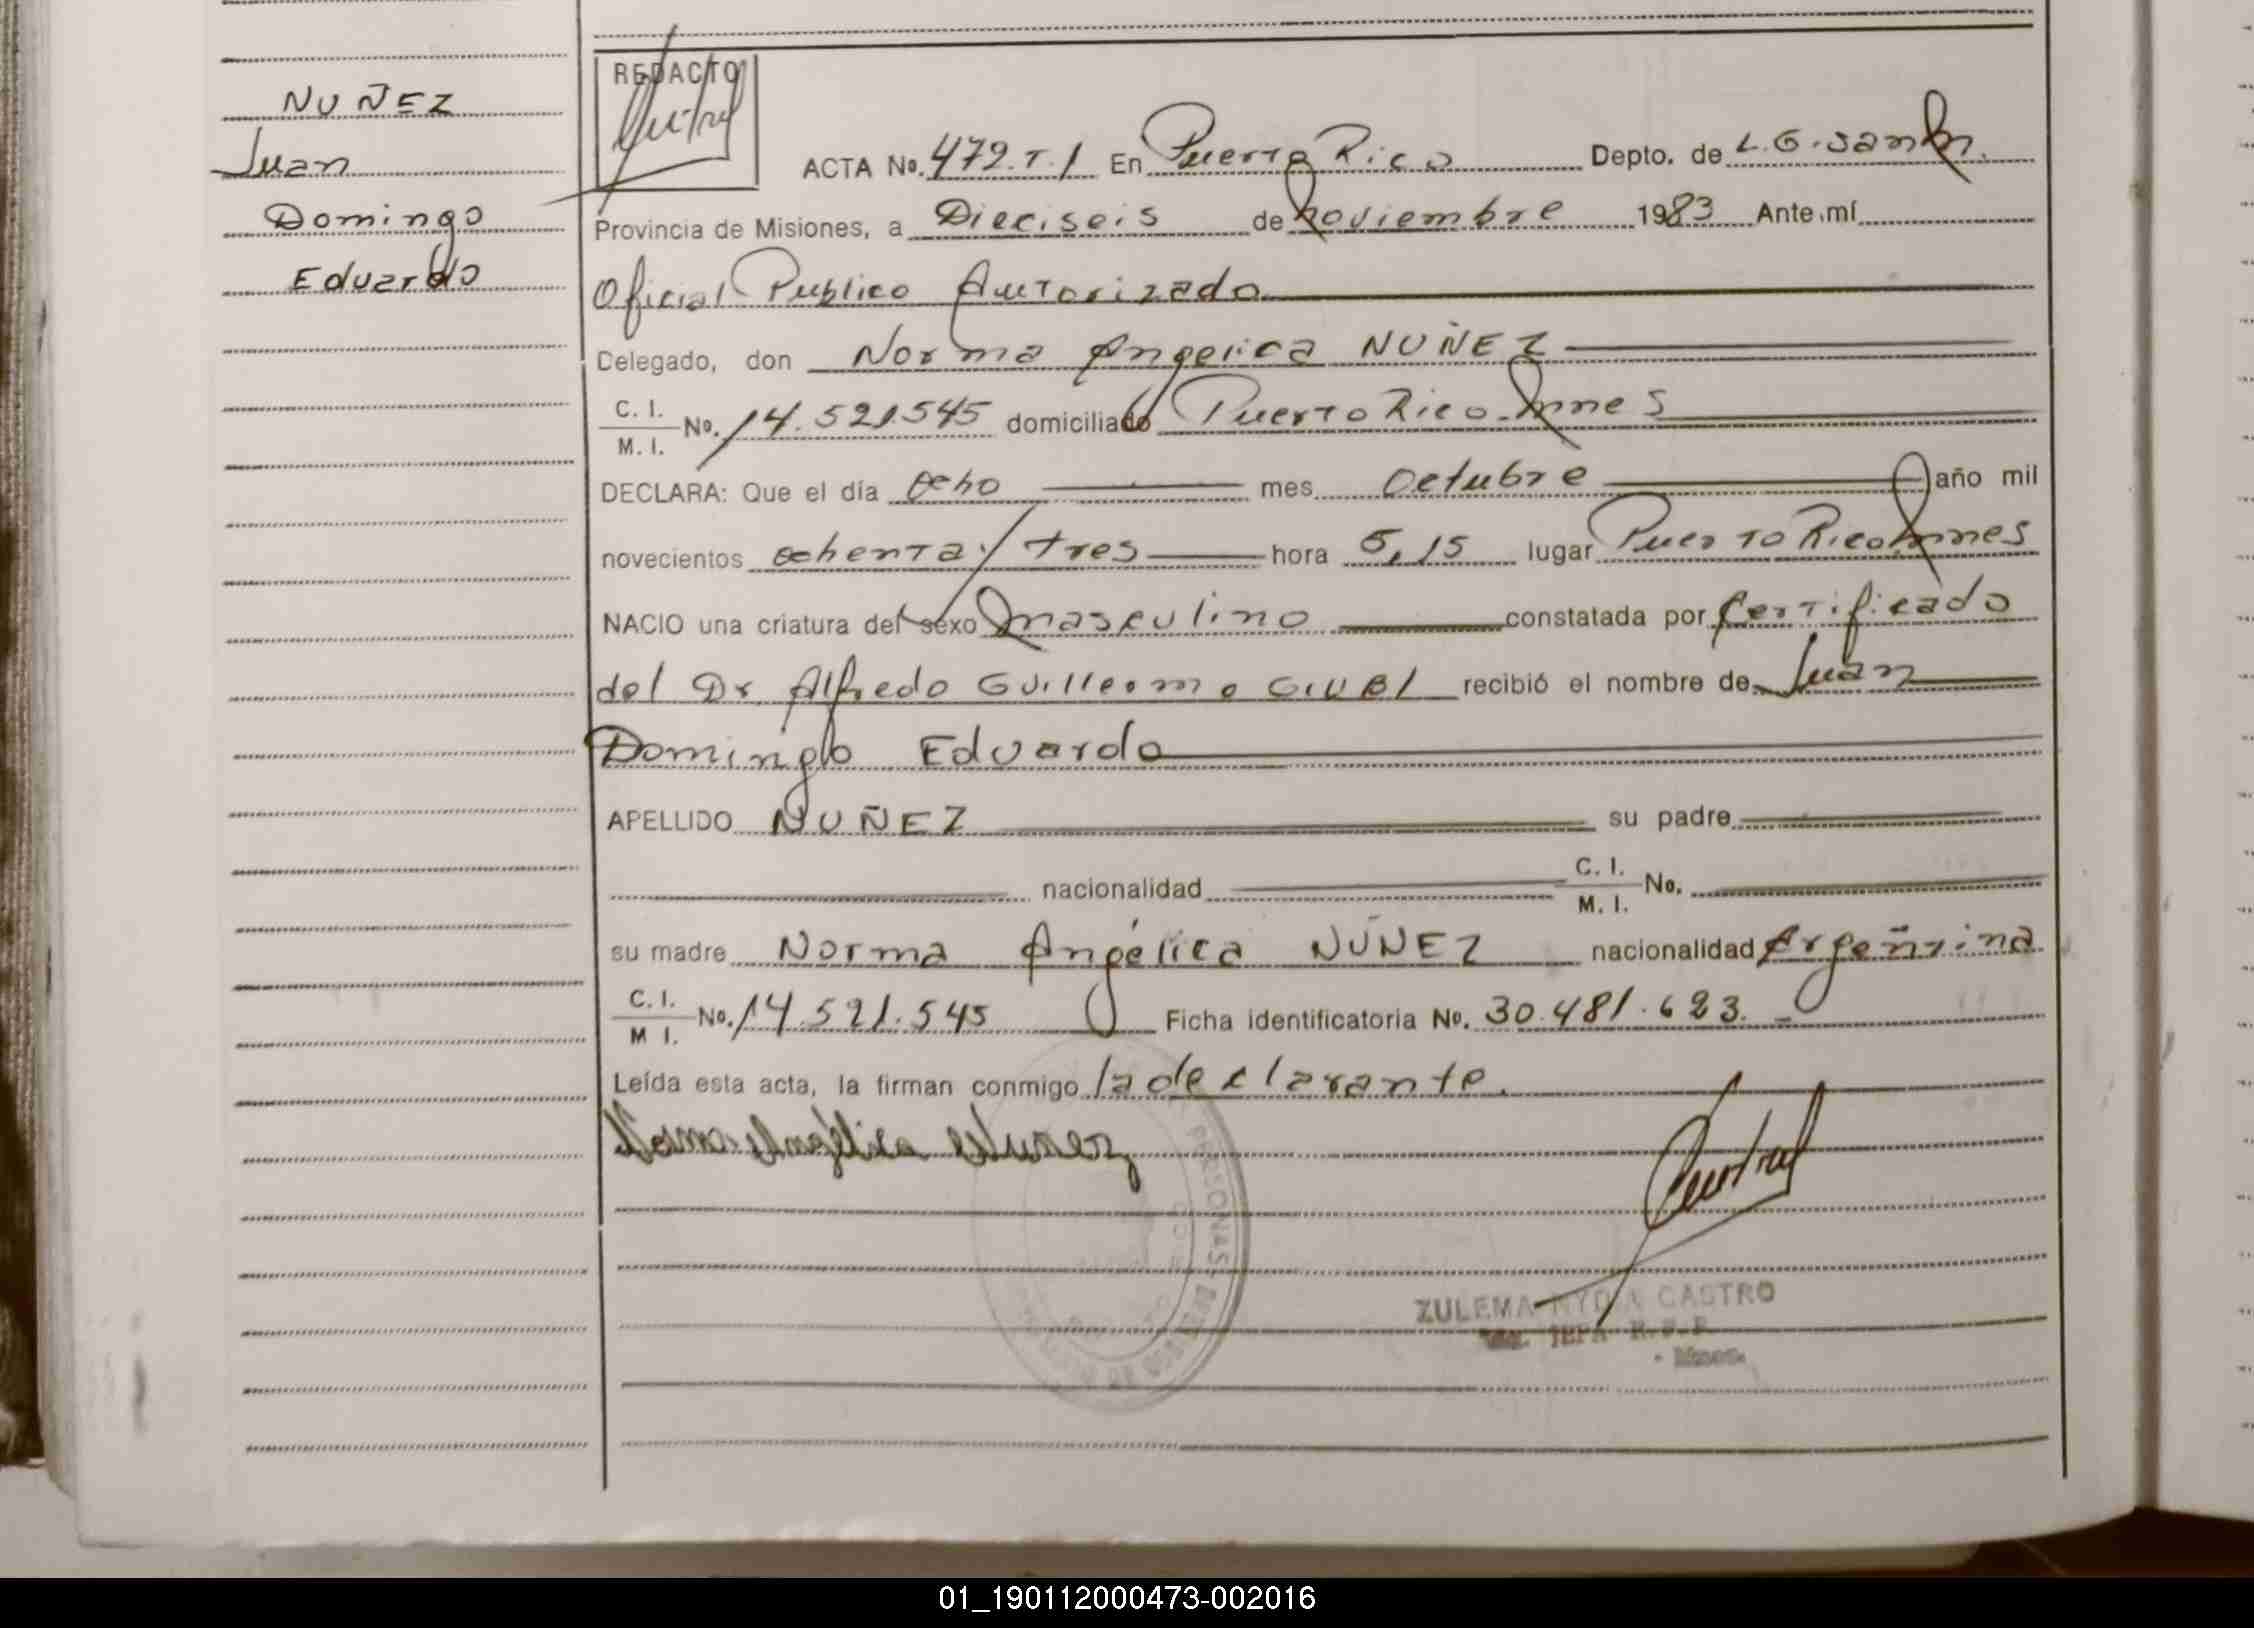 NUÑEZ
Juan
Domingo
Eduardo
REDACTO
ACTA No. 472.T.1 En Puerto Rico Depto. de L.G.San M.
Provincia de Misiones, a Dieciseis de noviembre 1983 Ante mí
Oficial Publico Autorizado
Delegado, don Norma Angelica NUÑEZ
C. I. / M. I. No. 14.521.545 domiciliado Puerto Rico Mnes
DECLARA: Que el día ocho mes octubre año mil
novecientos ochenta y tres hora 5,15 lugar Puerto Rico Mnes
NACIO una criatura del sexo masculino constatada por Certificado
del Dr. Alfredo Guillermo recibió el nombre de Juan
Domingo Eduardo
APELLIDO NUÑEZ su padre
nacionalidad C. I. / M. I. No.
su madre Norma Angélica NUÑEZ nacionalidad Argentina
C. I. / M I. No. 14.521.545 Ficha identificatoria No. 30.481.623.
Leída esta acta, la firman conmigo la declarante.
PERSONAS
ZULEMA NYDIA CASTRO
01_190112000473-002016